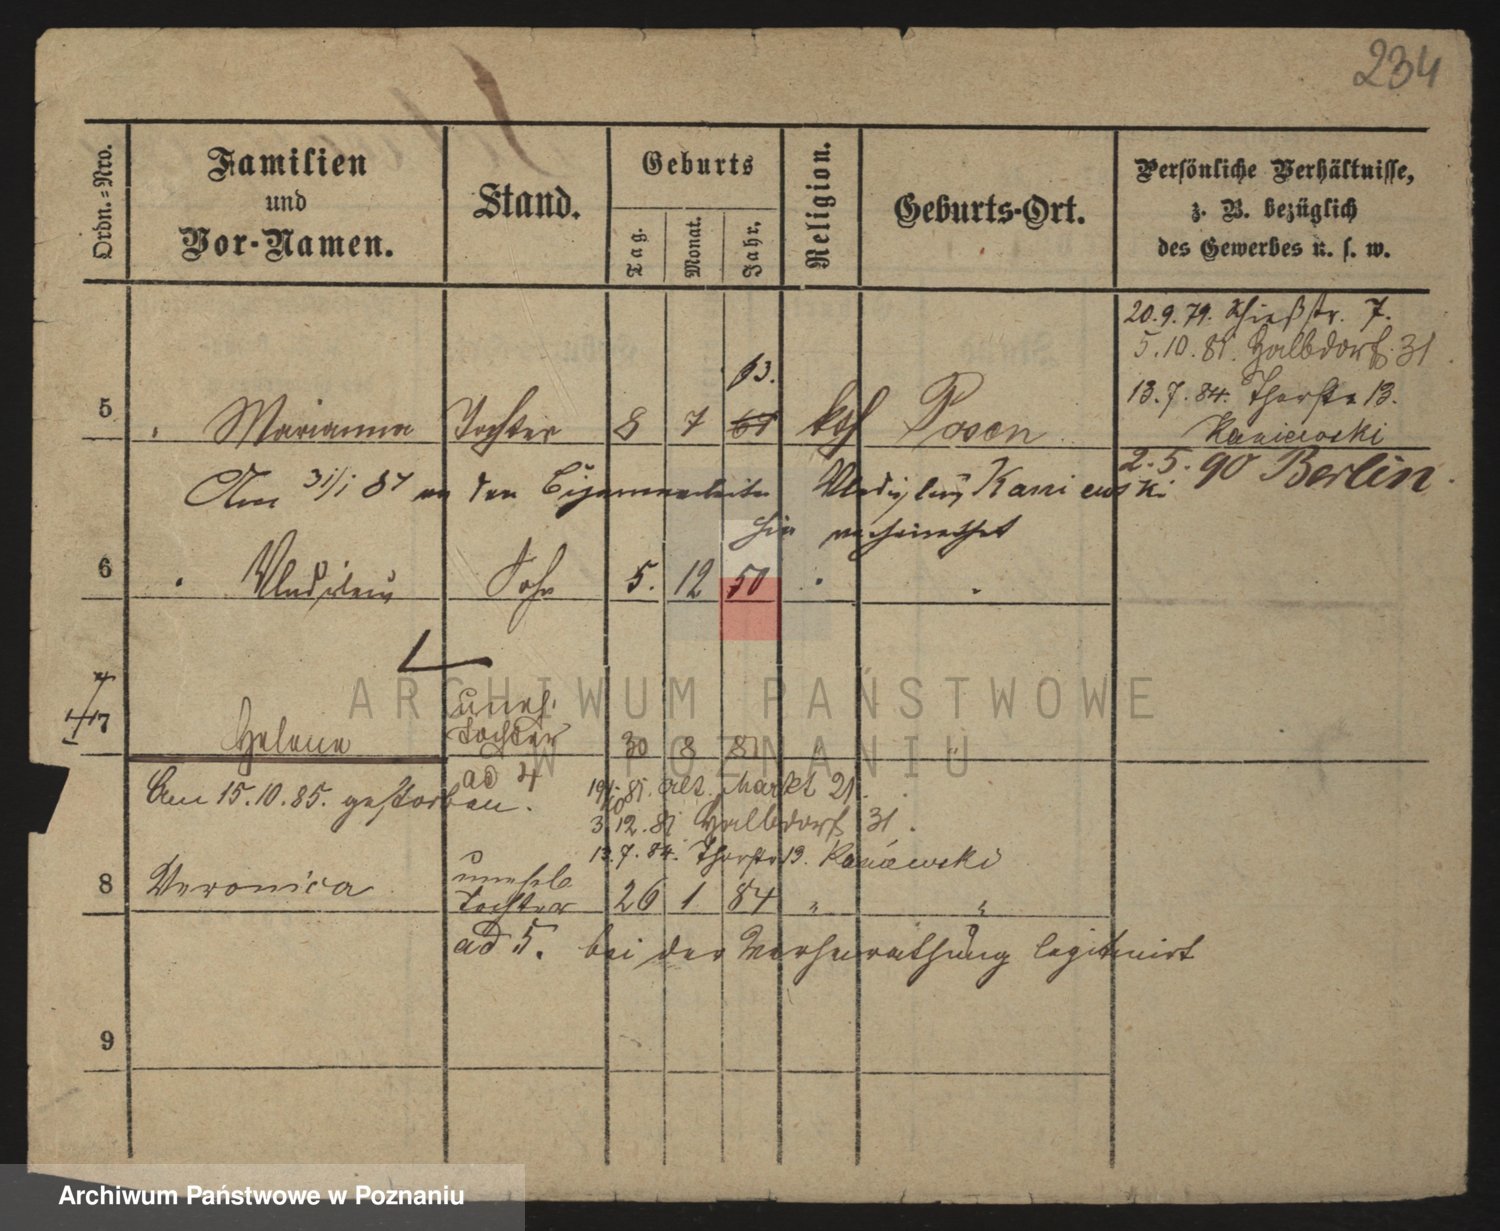 234
Ordn.-Nro.
Familien
und
Vor-Namen.
Stand.
Geburts
Tag.
Monat.
Jahr.
Religion.
Geburts-Ort.
Persönliche Verhältnisse,
z. B. bezüglich
des Gewerbes u. s. w.
20.9.79. Schießstr. 7.
5.10.81. Halbdorfs. 31
13.7.84. Thorstr 13.
Kaniewski
2.5.90 Berlin.
63.
5 Marianna Tochter 8 7 61 kth Posen
Am 31/1 87 an den Cigarrenarbeiter Vladislaus Kaniewski
hier verheirathet
6 " Vladislaus Sohn 5. 12 50 " "
7 Helene uneh. Tochter 30 8 81 " "
ad 4
Am 15.10.85. gestorben.
19/10 81. Alt. Markt 21.
3.12.81 Halbdorfs 31.
13.7.84. Thorstr 13. Kaniewski
8 Veronica unehel Tochter 26 1 84 " "
ad 5. bei der Verheirathung legitimirt
9
ARCHIWUM PAŃSTWOWE
W POZNANIU
Archiwum Państwowe w Poznaniu